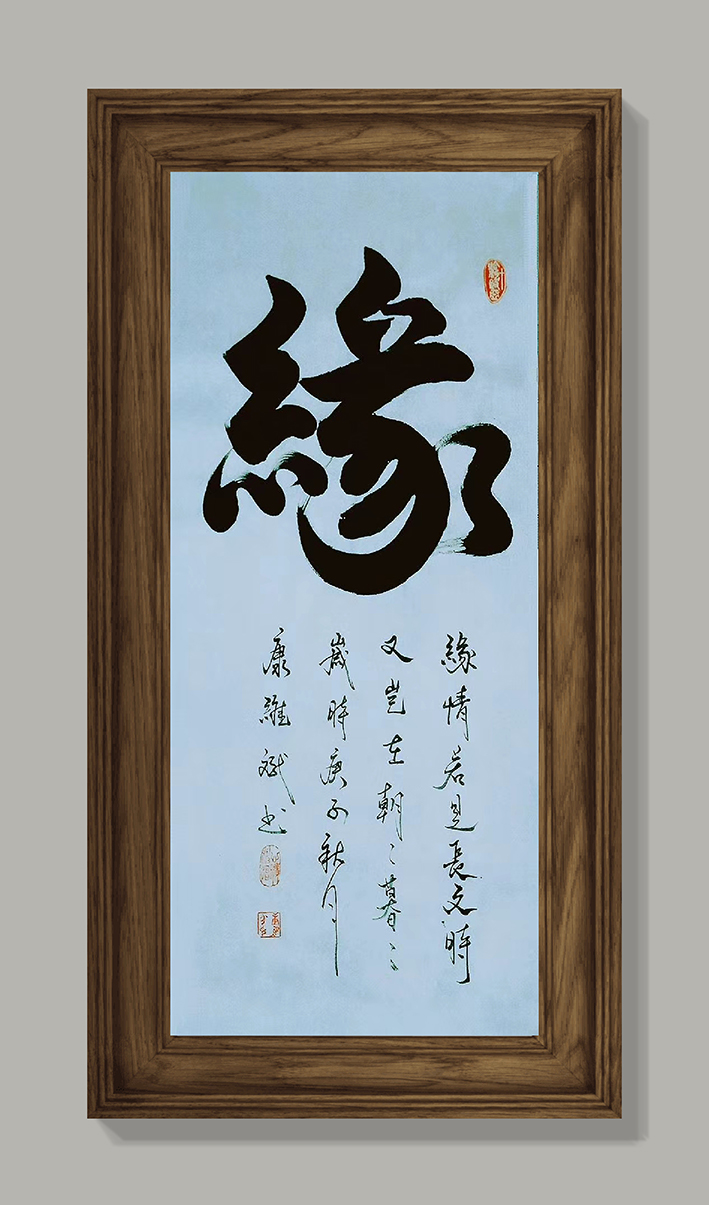 緣
緣情若是長久時
又豈在朝〻暮〻
歲時庚子秋月
康維斌书